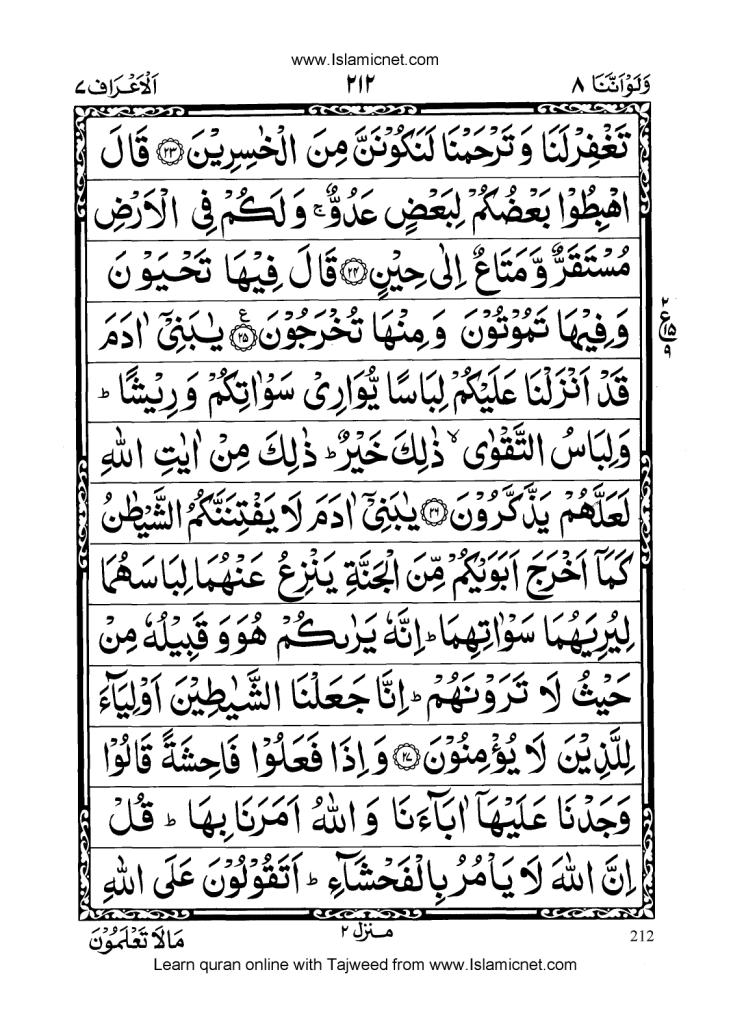 www.Islamicnet.com
وَلَوْ اَنَّنَا ٨
٢١٢
اَلْاَعْرَاف ٧
تَغْفِرْ لَنَا وَ تَرْحَمْنَا لَنَكُوْنَنَّ مِنَ الْخٰسِرِيْنَ ﴿٢٣﴾ قَالَ
اهْبِطُوْا بَعْضُكُمْ لِبَعْضٍ عَدُوٌّ ۚ وَ لَكُمْ فِی الْاَرْضِ
مُسْتَقَرٌّ وَّ مَتَاعٌ اِلٰی حِيْنٍ ﴿٢٤﴾ قَالَ فِيْهَا تَحْيَوْنَ
وَ فِيْهَا تَمُوْتُوْنَ وَ مِنْهَا تُخْرَجُوْنَ ﴿٢٥﴾ ع يٰبَنِیْۤ اٰدَمَ
٢ ع ١٥ ٩
قَدْ اَنْزَلْنَا عَلَيْكُمْ لِبَاسًا يُّوَارِیْ سَوْاٰتِكُمْ وَ رِيْشًا ؕ
وَ لِبَاسُ التَّقْوٰی ۙ ذٰلِكَ خَيْرٌ ؕ ذٰلِكَ مِنْ اٰيٰتِ اللّٰهِ
لَعَلَّهُمْ يَذَّكَّرُوْنَ ﴿٢٦﴾ يٰبَنِیْۤ اٰدَمَ لَا يَفْتِنَنَّكُمُ الشَّيْطٰنُ
كَمَاۤ اَخْرَجَ اَبَوَيْكُمْ مِّنَ الْجَنَّةِ يَنْزِعُ عَنْهُمَا لِبَاسَهُمَا
لِيُرِيَهُمَا سَوْاٰتِهِمَا ؕ اِنَّهٗ يَرٰىكُمْ هُوَ وَ قَبِيْلُهٗ مِنْ
حَيْثُ لَا تَرَوْنَهُمْ ؕ اِنَّا جَعَلْنَا الشَّيٰطِيْنَ اَوْلِيَآءَ
لِلَّذِيْنَ لَا يُؤْمِنُوْنَ ﴿٢٧﴾ وَ اِذَا فَعَلُوْا فَاحِشَةً قَالُوْا
وَجَدْنَا عَلَيْهَاۤ اٰبَآءَنَا وَ اللّٰهُ اَمَرَنَا بِهَا ؕ قُلْ
اِنَّ اللّٰهَ لَا يَاْمُرُ بِالْفَحْشَآءِ ؕ اَتَقُوْلُوْنَ عَلَی اللّٰهِ
212
منزل ٢
مَا لَا تَعْلَمُوْنَ
Learn quran online with Tajweed from www.Islamicnet.com